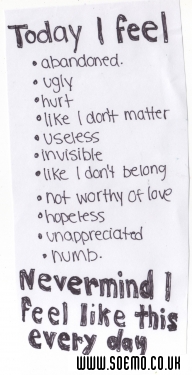 Today I feel
• abandoned.
• ugly
• hurt
• like I don't matter
• useless
• invisible
• like I don't belong
• not worthy of love
• hopeless
• unappreciated
• numb.
Nevermind I
feel like this
every day
WWW.SOEMO.CO.UK